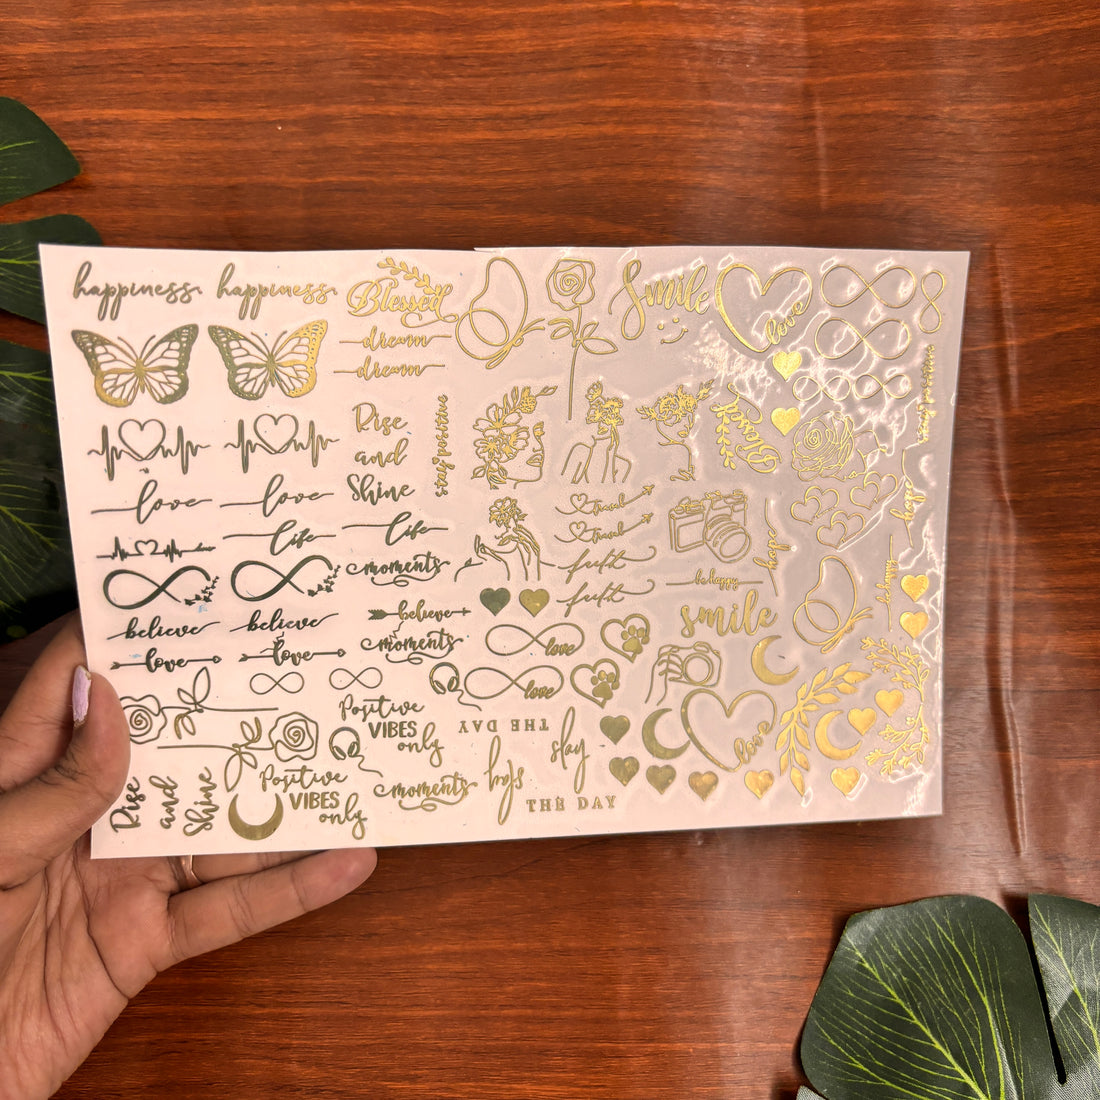 happiness
happiness
Blessed
dream
dream
Smile
love
Rise
and
Shine
stay positive
Blessed
stay positive
love
love
life
life
travel
travel
hope
hope
moments
faith
faith
be happy
be happy
believe
believe
believe
smile
love
love
moments
love
love
Positive
VIBES
only
THE DAY
slay
love
Rise
and
Shine
Positive
VIBES
only
moments
slay
THE DAY